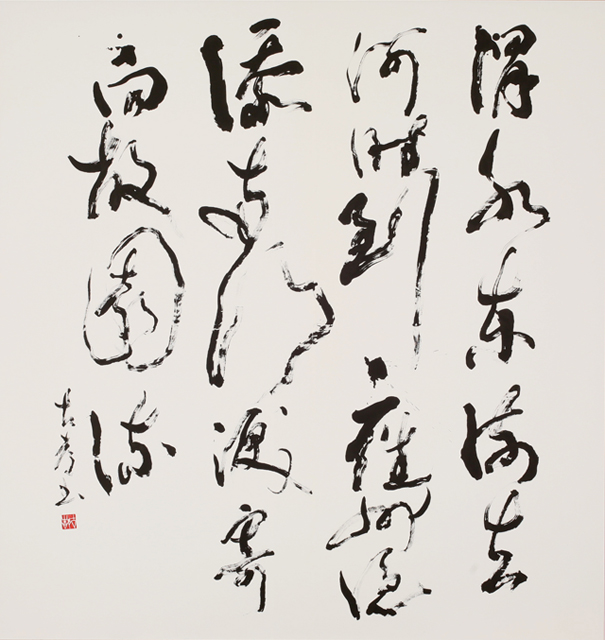 渭水東流去
何時到雍州憑
添兩行淚寄
向故園流